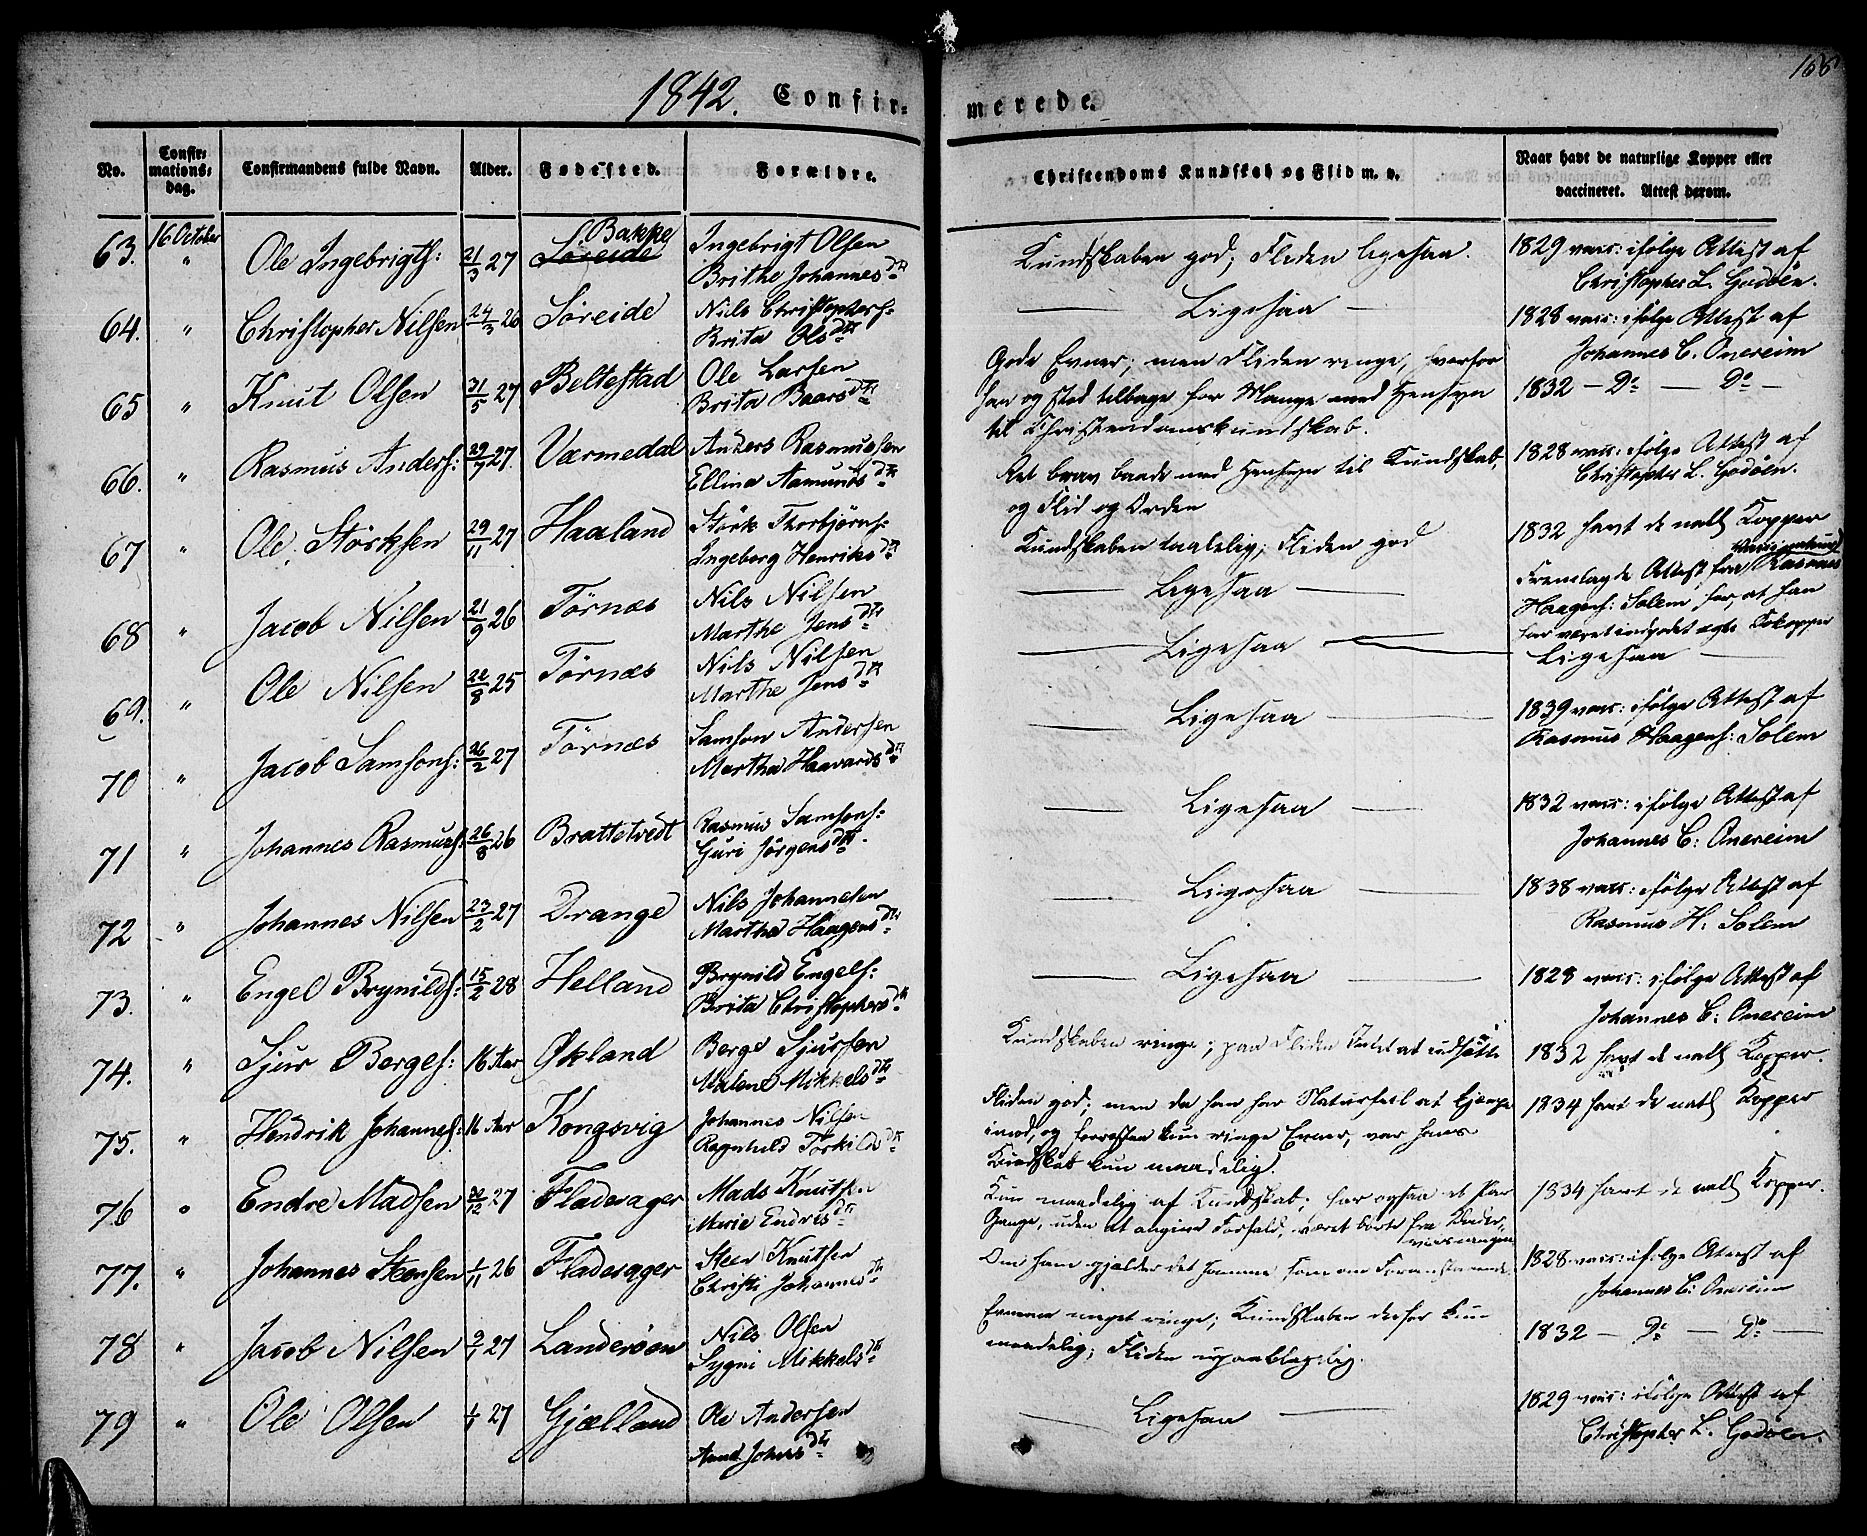 166
1842. Confir-
merede.
No. Confirmations-dag. Confirmandens fulde Navn. Alder. Fødested. Forældre. Christendoms Kundskab og Flid m. v. Naar havt de naturlige Kopper eller vaccineret. Attest derom.
63. 16 October " Ole Ingebrigts: 21/3 27 S. Bakke Søreide Ingebrigt Olsen
Brithe Johannesdtr
Kundskaben god; Fliden ligesaa. 1829 vacc: ifølge Attest af
Christopher L. Godøen.
64. " Christopher Nilsen 24/3 26 Søreide Nils Christophers:
Brita Olsdtr
Ligesaa 1828 vacc: ifølge Attest af
Johannes C. Onereim
65 " Knut Olsen 31/5 27 Beltestad Ole Larsen
Brita Baarsdtr
Gode Evner; men Fliden ringe, hvorfor
han og stod tilbage for Mange med Hensyn
til Christendomskundskab.
1832 – Do – Do –
66. " Rasmus Anders: 29/7 27. Værmedal Anders Rasmussen
Ellina Aamundsdtr
Ret brav baade med Hensyn til Kundskab,
og Flid og Orden
1828 vacc: ifølge Attest af
Christopher L. Godøen.
67 " Ole Størksen 29/11 27 Haaland Størk Thorbjørns:
Ingeborg Henriksdtr
Kundskaben taalelig; Fliden god 1832 havt de natl Kopper
68 " Jacob Nilsen 21/9 26 Tørnæs Nils Nilsen
Marthe Jensdtr
Ligesaa Fremlagde Attest fra Vaccinateur Rasmus
Haagens: Solem for, at han
har været indpodet ægte Kokopper
69. " Ole Nilsen 22/8 25 Tørnæs Nils Nilsen
Marthe Jensdtr
Ligesaa Ligesaa
70 " Jacob Samsons: 26/2 27 Tørnæs Samson Andersen
Martha Haavardsdtr
Ligesaa 1839 vacc: ifølge Attest af
Rasmus Haagens: Solem
71 " Johannes Rasmuss: 26/8 26 Brattetvedt Rasmus Samsons:
Guri Jørgensdtr.
Ligesaa 1832 vacc: ifølge Attest af
Johannes C: Onereim
72 " Johannes Nilsen 23/2 27 Drange Nils Johannesen
Martha Haagensdtr
Ligesaa 1838 vacc: ifølge Attest af
Rasmus H. Solem
73. " Engel Brynilds: 15/2 28 Helland Brynild Engels:
Brita Christophersdtr
Ligesaa 1828 vacc: ifølge Attest af
Johannes C: Onereim
74. " Sjur Berges: 16 Aar Økland Berge Sjursen
Malene Mikkelsdtr
Kundskaben ringe; paa Fliden Intet at udsætte 1832 havt de natl Kopper.
75. " Hendrik Johannes: 16 Aar Kongsvig Johannes Nilsen
Ragnhild Torkildsdtr
Fliden god; men da han har Naturfeil at kjæmpe
imod, og forresten kun ringe Evner, var hans
Kundskab kun maadelig.
1834 havt de natl Kopper
76 " Endre Madsen 22/12 27 Fladesager Mads Knutsen
Marie Endresdtr
Kun maadelig af Kundskab; har ogsaa et Par
Gange, uden at angive Forfald, været borte fra
1834 havt de natl Kopper.
77. " Johannes Steensen 1/11 26 Fladesager Steen Knutsen
Christi Johannesdtr
Om ham gjælder det samme som om Foranstaaende. 1828 vacc: ifølge Attest af
Johannes C: Onereim
78 " Jacob Nilsen 2/1 27 Landerøen Nils Olsen
Sygni Mikkelsdtr
Evnerne meget ringe; Kundskaben derfor kun
maadelig; Fliden upaaklagelig.
1832 – Do – Do –
79 " Ole Olsen 27 Gjælland Ole Andersen
Ligesaa 1829 vacc: ifølge Attest af
Christopher L. Godøen.